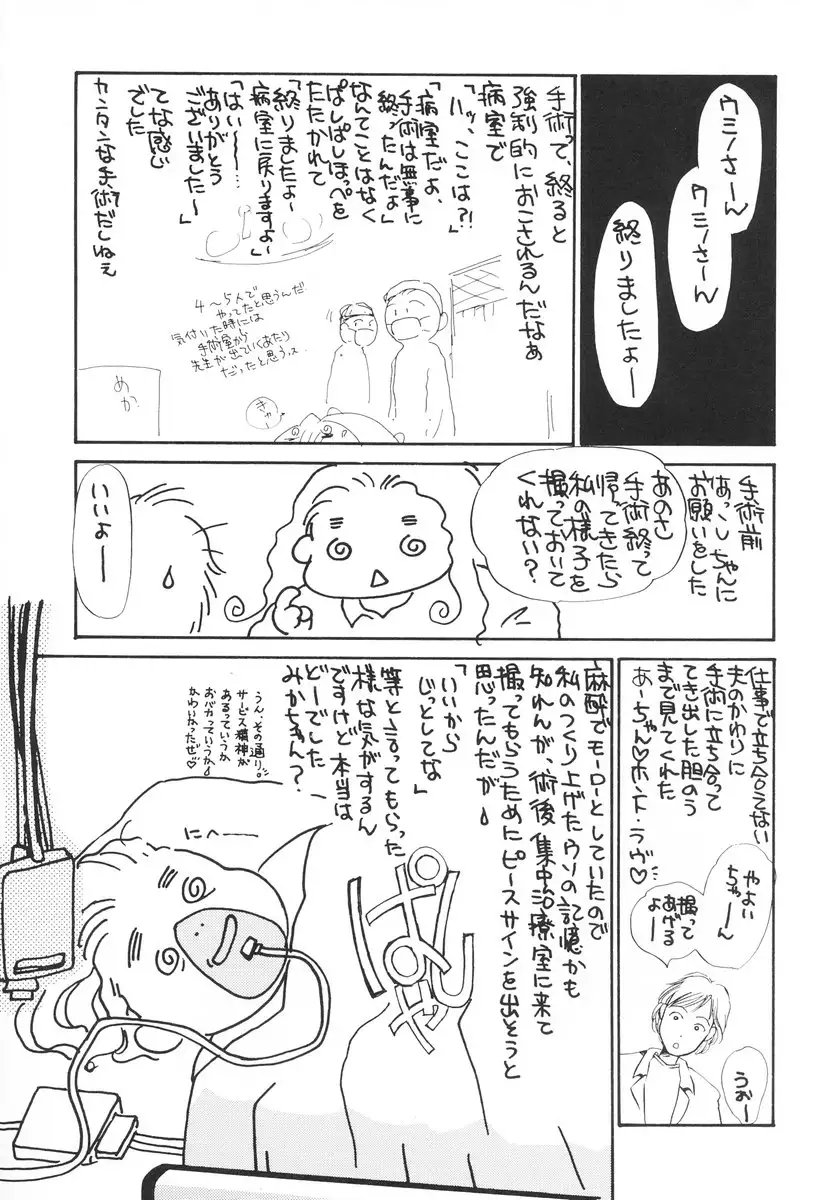 ウミノさーん
ウミノさーん
終りましたよー
手術って、終ると
強制的におこされるんだなぁ
病室で
「ハッ、ここは?!」
「病室だよ、
手術は無事に
終ったんだよ」
なんてことはなく
ぱしぱしほっぺを
たたかれて
「終りましたよ〜
病室に戻りますよ〜」
「はい〜…
ありがとう
ございました〜」
てな感じ
でした
カンタンな手術だしねぇ
4〜5人で
やってたと思うんだ
気付いた時には
手術室から
先生が出ていくあたり
だったと思うっス
きゃー
めか
手術前
あっこちゃんに
お願いをした
あのさ
手術終って
帰ってきたら
私の様子を
撮っておいて
くれない?
いいよー
仕事で立ち会えてない
夫のかわりに
手術に立ち会って
てき出した胆のう
まで見てくれた
あーちゃん♡ホント・ラヴ♡
やよい
ちゃーん
撮って
あげる
よー
うおー
麻酔でモーローとしていたので
私のつくり上げたウソの記憶かも
知れんが、術後集中治療室に来て
撮ってもらうためにピースサインを出そうと
思ったんだが
「いいから
じっとしてな」
等と言ってもらった
様な気がするん
ですけど本当は
どーでした
みかちゃん?
うん、その通り。
サービス精神が
あるっていうか
おバカっていうか
かわいかったぜ♡
にへ——
ぱしゃり